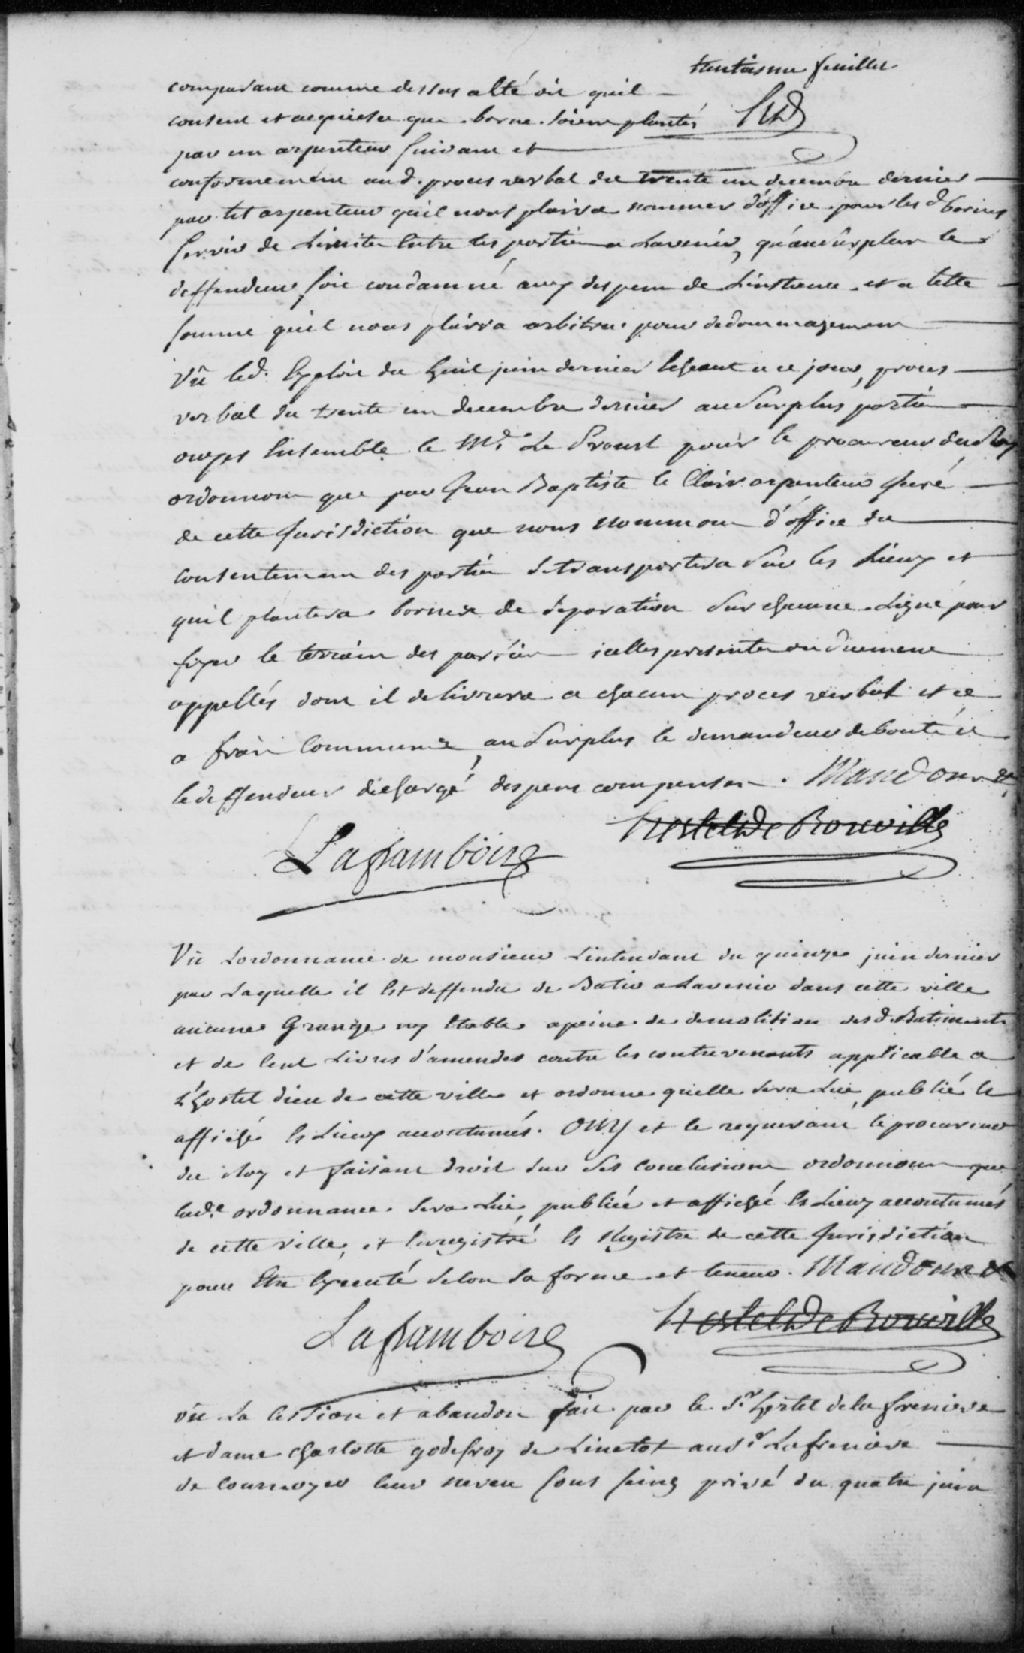 trentiesme feuillet
comparant comme dessus a été dit quil
consent et acquiesce que borne soient plantés
par un arpenteur suivant et
conformement aud. proces verbal du trente un decembre dernier
par tel arpenteur quil nous plaira nommer d'office pour les d. bornes
servir de Limite Entre les partie a Lavenir, qu'au surplus le
deffendeur soit condamné aux despens de Linstance et a telle
somme quil nous plaira arbitrer pour dedommagement
Vû led. Exploit du huit juin dernier Escheant a ce jour, proces
verbal du trente un decembre dernier au Surplus partie
ouyes Ensemble le Mr. Le Proust pour le procureur du Roy
ordonnons que par Jean Baptiste le Clair arpenteur juré
de cette Jurisdiction que nous nommons d'office du
consentement des partie se transportera sur les Lieux et
quil plantera bornes de separation sur chacune Ligne pour
fixer le terrain des partie icelles presente ou duement
appellés dont il delivrera a chacun proces verbal et ce
a frais communs, au surplus le demandeur debouté et
le deffendeur dechargé despens compensés. Mandons &
Hertel De Rouville
Laframboise
Vû Lordonnance de monsieur Lintendant du quinze juin dernier
par Laquelle il Est deffendu de Batir a Lavenir dans cette ville
aucune Grange ny Etable apeine de demolition desd. Batiments
et de Cent Livres d'amendes contre les contrevenants applicable a
L'hostel dieu de cette ville et ordonne quelle sera Lue, publié et
affiché Es Lieux accoutumés. OUY et le requerant le procureur
du Roy et faisant droit sur ses conclusions ordonnons que
lad.e ordonnance sera Lue, publiée et affiché Es Lieux accoutumés
de cette ville, et Enregistré Es Registre de cette Jurisdiction
pour Etre Executé selon sa forme et teneur. Mandons &
Hertel De Rouville
Laframboise
Vû La Cession et abandon fait par le Sr. hertel de la freniere
et dame charlotte godefroy de Linctot au Sr. Lafreniere
de Cournoyer leur neveu sous seing privé du quatre juin